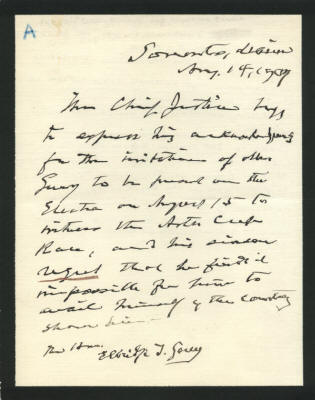 A
Sorrento, Maine
Aug. 14, 1899
The Chief Justice begs
to express his acknowledgments
for the invitation of
Gerry to be present on the
Electra on August 15 to
witness the Astor Cup
Race, and his sincere
regret that he finds it
impossible for him to
avail himself of the courtesy
shown him
The Hon.
Elbridge T. Gerry